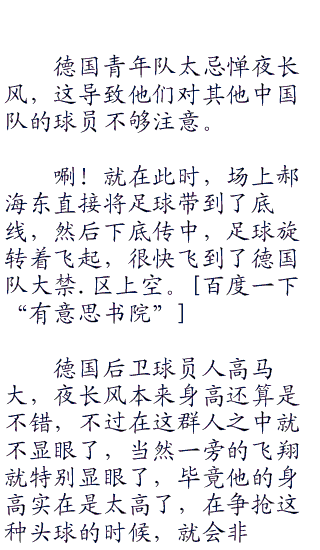 德国青年队太忌惮夜长
风，这导致他们对其他中国
队的球员不够注意。
唰！就在此时，场上郝
海东直接将足球带到了底
线，然后下底传中，足球旋
转着飞起，很快飞到了德国
队大禁.区上空。[百度一下
“有意思书院”]
德国后卫球员人高马
大，夜长风本来身高还算是
不错，不过在这群人之中就
不显眼了，当然一旁的飞翔
就特别显眼了，毕竟他的身
高实在是太高了，在争抢这
种头球的时候，就会非